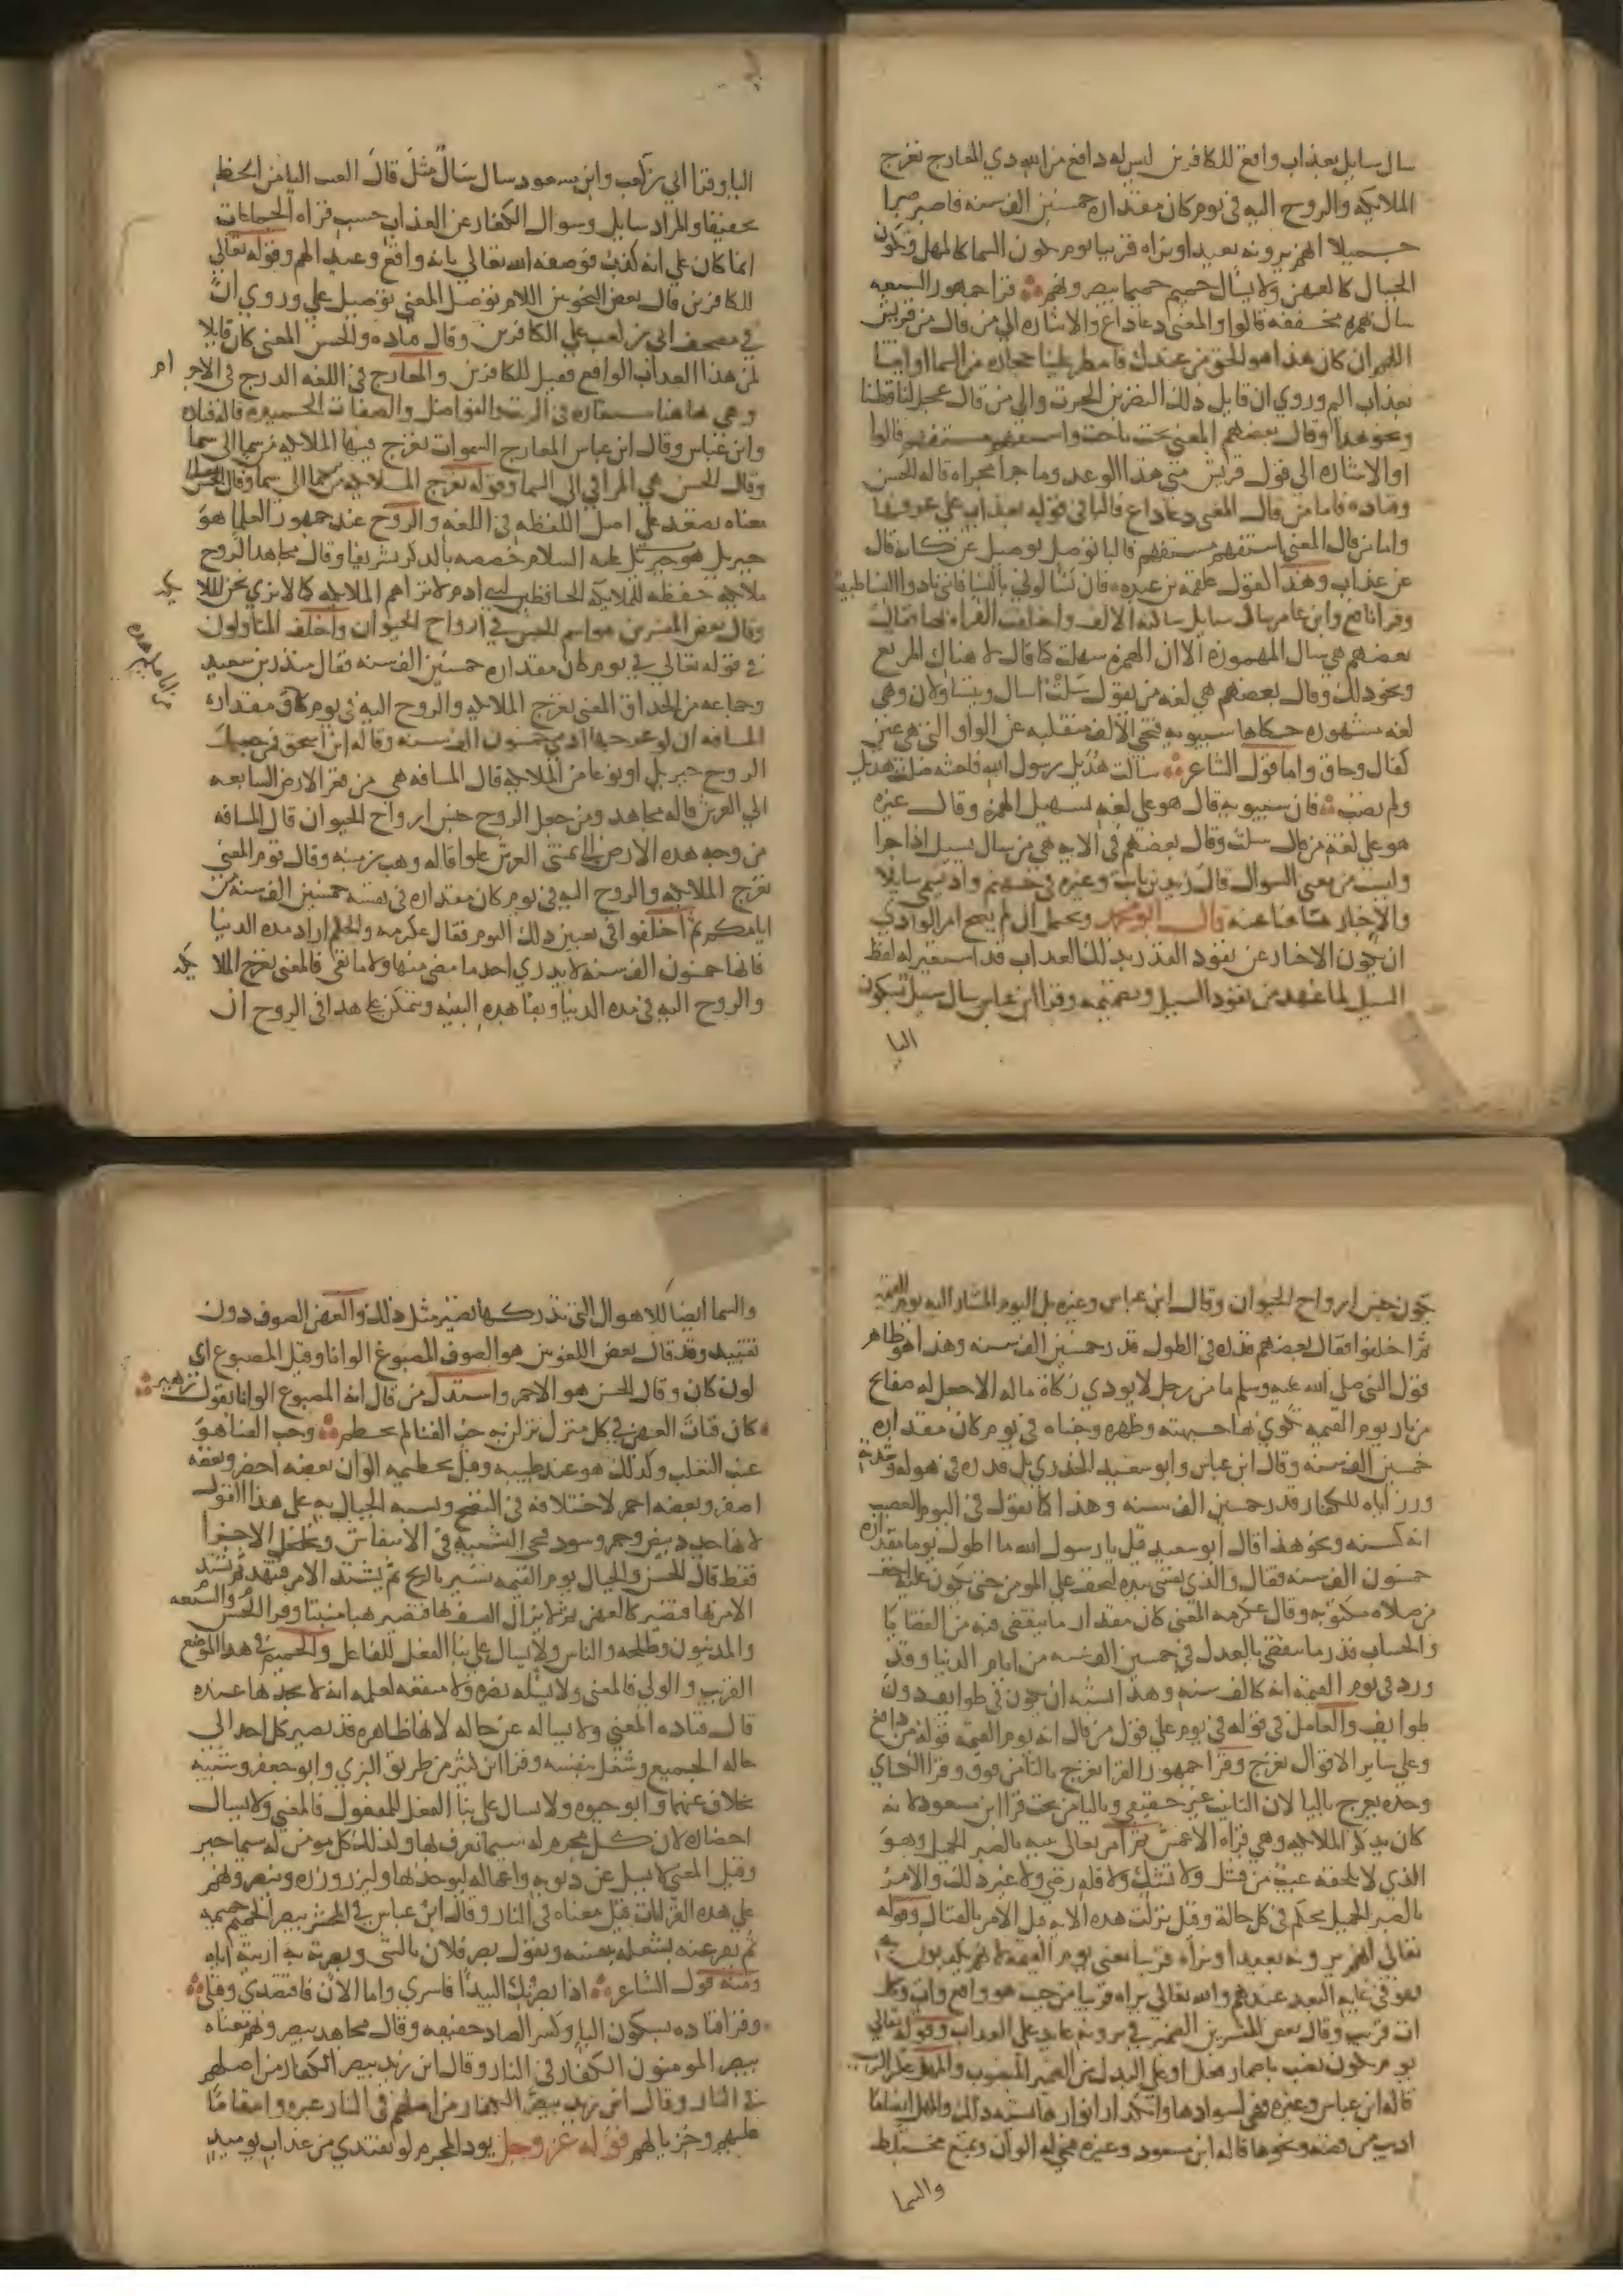 سال سايل بعذاب واقع للكافرين ليس له دافع من الله ذي المعارج تعرج
الملايكه والروح اليه في يوم كان مقداره خمسين الف سنه فاصبر صبرا
جميلا انهم يرونه بعيدا ونراه قريبا يوم تكون السما كالمهل وتكون
الجبال كالعهن ولا يسال حميم حميما يبصرونهم قرا جمهور السبعه
سال بهمزه مخففه قالوا والمعنى دعا داع والاشاره الى من قال من قريش
اللهم ان كان هذا هو الحق من عندك فامطر علينا حجاره من السما او ايتنا
بعذاب اليم وروي ان قايل ذلك النضر بن الحرث والى من قال عجل لنا قطنا
ونحو هذا وقال بعضهم المعنى بحث باحث واستفهم مستفهم قالوا
او الاشاره الى قول قريش متى هذا الوعد وما جرا مجراه قاله الحسن
وقتاده فاما من قال المعنى دعا داع فالبا في قوله بعذاب على عرفها
واما من قال المعنى استفهم مستفهم فالبا توصل توصيل عن كانه قال
عن عذاب وهذا كقول علقمه بن عبده فان تسالوني بالنسا فاني
وقرا نافع وابن عامر سال سايل ساكنه الالف واختلف القراه بها فقال
بعضهم هي سال المهموزه الا ان الهمزه سهلت كما قال لا هناك المرتع
ونحو ذلك وقال بعضهم هي لغه من يقول سلت اسال ويتساولان وهي
لغه مشهوره حكاها سيبويه فتجي الالف منقلبه عن الواو التي هي عين
كقال وخاف واما قول الشاعر سالت هذيل رسول الله فاحشه ضلت هذيل
ولم تصب فان سيبويه قال هو على لغه تسهيل الهمزه وقال غيره
هو على لغه من قال سلت وقال بعضهم في الايه هي من سال يسيل اذا جرا
وليست من معنى السوال قال زيد بن ثابت وغيره في جهنم واد يسمى سايلا
والاخبار هاهنا عنه قال ابو محمد ويحتمل ان لم يصح امر الوادي
ان يكون الاخبار عن نفوذ القدر بذلك العذاب قد استعير له لفظ
السيل لما عهد من نفوذ السيل وتصميمه وقرا ابن عباس سال سيل بسكون
اليا
اليا وقرا ابي بن كعب وابن مسعود سال سال مثل قال القيت اليا من الخط
تخفيفا والمراد سايل وسوال الكفار عن العذاب حسب قراه الجماعات
انما كان على انه كذب فوصفه الله تعالى بانه واقع وعيدا لهم وقوله تعالى
للكافرين قال بعض النحويين اللام توصل المعنى توصيل على وروي ان
في مصحف ابي بن كعب على الكافرين وقال قتاده والحسن المعنى كان قايلا
لمن هذا العذاب الواقع فقيل للكافرين والمعارج في اللغه الدرج في الاجرام
وهي هاهنا مستعاره في الرتب والفواضل والصفات الحميده قاله قتاده
وابن عباس وقال ابن عباس المعارج السموات تعرج فيها الملايكه من سما الى سما
وقال الحسن هي المراقي الى السما وقوله تعرج الملايكه من سما الى سما وقال الحسن
معناه تصعد على اصل اللفظه في اللغه والروح عند جمهور العلما هو
جبريل هو جبريل عليه السلام خصصه بالذكر تشريفا وقال مجاهد الروح
ملايكه حفظه للملايكه الحافظين لبني ادم لا تراهم الملايكه كما لا نرى نحن الملايكه
وقال بعض المفسرين هو اسم الجنس في ارواح الحيوان واختلف المتاولون
في قوله تعالى في يوم كان مقداره خمسين الف سنه فقال منذر بن سعيد
وجماعه من الحذاق المعنى تعرج الملايكه والروح اليه في يوم كان مقداره
من ايامكم هذه
المسافه ان لو عرجها ادمي خمسون الف سنه وقاله ابن اسحق فمن جعل
الروح جبريل او نوعا من الملايكه قال المسافه هي من قعر الارض السابعه
الى العرش قاله مجاهد ومن جعل الروح جنس ارواح الحيوان قال المسافه
من وجه هذه الارض الى منتهى العرش علوا قاله وهب بن منبه وقال قوم المعنى
تعرج الملايكه والروح اليه في يوم كان مقداره في نفسه خمسين الف سنه من
ايامكم ثم اختلفوا في تعيين ذلك اليوم فقال عكرمه والحكم اراد مده الدنيا
فانها خمسون الف سنه لا يدري احد ما مضى منها ولا ما بقي فالمعنى تعرج الملايكه
والروح اليه في مده الدنيا وبقا هذه البنيه ويتمكن على هذا في الروح ان
يكون جنس ارواح الحيوان وقال ابن عباس وغيره بل اليوم المشار اليه يوم القيمه
ثم اختلفوا فقال بعضهم قدره في الطول قدر خمسين الف سنه وهذا هو ظاهر
قول النبي صلى الله عليه وسلم ما من رجل لا يودي زكاة ماله الا جعل له صفايح
من نار يوم القيمه تكوي بها جبهته وظهره وجنباه في يوم كان مقداره
خمسين الف سنه وقال ابن عباس وابو سعيد الخدري بل قدره في هوله وشدته
ورزاياه للكفار قدر خمسين الف سنه وهذا كما تقول في اليوم العصيب
انه كسنه ونحو هذا قال ابو سعيد قيل يا رسول الله ما اطول يوما مقداره
خمسون الف سنه فقال والذي نفسي بيده ليخف على المومن حتى يكون عليه اخف
من صلاه مكتوبه وقال عكرمه المعنى كان مقدار ما ينقضي فيه من القضايا
والحساب قدر ما ينقضي بالعدل في خمسين الف سنه من ايام الدنيا وقد
ورد في يوم القيمه انه كالف سنه وهذا يشبه ان يكون في طوايف دون
طوايف والعامل في قوله في يوم على قول من قال انه يوم القيمه قوله من دافع
وعلى ساير الاقوال تعرج وقرا جمهور القرا تعرج بالتا من فوق وقرا الكساي
وحده يعرج باليا لان التانيث غير حقيقي وباليا من تحت قرا ابن مسعود لانه
كان يذكر الملايكه وهي قراه الاعمش ثم امر تعالى نبيه بالصبر الجميل وهو
الذي لا يلحقه عيب من فشل ولا تشكك ولا قله رضى ولا غير ذلك والامر
بالصبر الجميل محكم في كل حالة وقيل نزلت هذه الايه قبل الامر بالقتال وقوله
تعالى انهم يرونه بعيدا ونراه قريبا يعني يوم القيمه لانهم يكذبون به
فهو في غايه البعد عندهم والله تعالى يراه قريبا من حيث هو واقع وات وكل
ات قريب وقال بعض المفسرين الضمير في يرونه عايد على العذاب وقوله تعالى
يوم تكون نصب باضمار فعل او على البدل من الضمير المنصوب والمهل عكر الزيت
قاله ابن عباس وغيره فهي لسوادها وانكدار انوارها تشبه ذلك والمهل ايضا ما
اذيب من فضه ونحوها قاله ابن مسعود وغيره فيجي له الوان وتميع مختلط
والسما
والسما ايضا للاهوال التي تدركها تصير مثل ذلك والعهن الصوف دون
تقييد وقد قال بعض اللغويين هو الصوف المصبوغ الوانا وقيل المصبوغ اي
لون كان وقال الحسن هو الاحمر واستدل من قال انه المصبوغ الوانا بقول زهير
كان فتات العهن في كل منزل نزلن به حب الفنا لم يحطم وحب الفنا هو
عنب الثعلب وكذلك هو عند طيبه وقبل تحطيمه الوان بعضه اخضر وبعضه
اصفر وبعضه احمر لاختلافه في النضج وتشبه الجبال به على هذا القول
لانها جدد بيض وحمر وسود فيجي التشبيه في الانتفاش وتخلخل الاجزا
فقط قال الحسن والجبال يوم القيمه تسير بالريح ثم يشتد الامر فتنهد ثم يشتد
الامر بها فتصير كالعهن ثم لا يزال العسف بها فتصير هبا منبثا وقرا الحسن والسبعه
والمدنيون وطلحه والناس ولا يسال على بنا الفعل للفاعل والحميم في هذا الموضع
القريب والولي فالمعنى ولا يسله نصره ولا منفعه لعلمه انه لا يجدها عنده
قال قتاده المعنى ولا يساله عن حاله لانها ظاهره قد بصر كل احد الى
حاله الجميع وشغل بنفسه وقرا ابن كثير من طريق البزي وابو جعفر وشيبه
بخلاف عنهما وابو حيوه ولا يسال على بنا الفعل للمفعول فالمعنى ولا يسال
احضاره لان كل مجرم له سيما يعرف بها وكذلك كل مومن له سيما خير
وقيل المعنى لا يسيل عن ذنوبه واعماله ليوخذ بها وليزر وزره ويبصرونهم
على هذه القراات قيل معناه في النار وقال ابن عباس في المحشر يبصر الحميم حميمه
ثم يفر عنه لشغله بنفسه وتقول بصر فلان بالشي وبصرته به اريته اياه
ومنه قول الشاعر اذا بصرتك البيدا فاسري واما الان فاقتصدي وقيلي
وقرا قتاده بسكون البا وكسر الصاد خفيفه وقال مجاهد يبصرونهم معناه
يبصر المومنون الكفار في النار وقال ابن زيد يبصر الكفار من اضلهم
في النار وقال ابن زيد يبصر الكفار من اضلهم في النار عبره وانتقاما
عليهم وخزيا لهم قوله عز وجل يود المجرم لو يفتدي من عذاب يوميذ